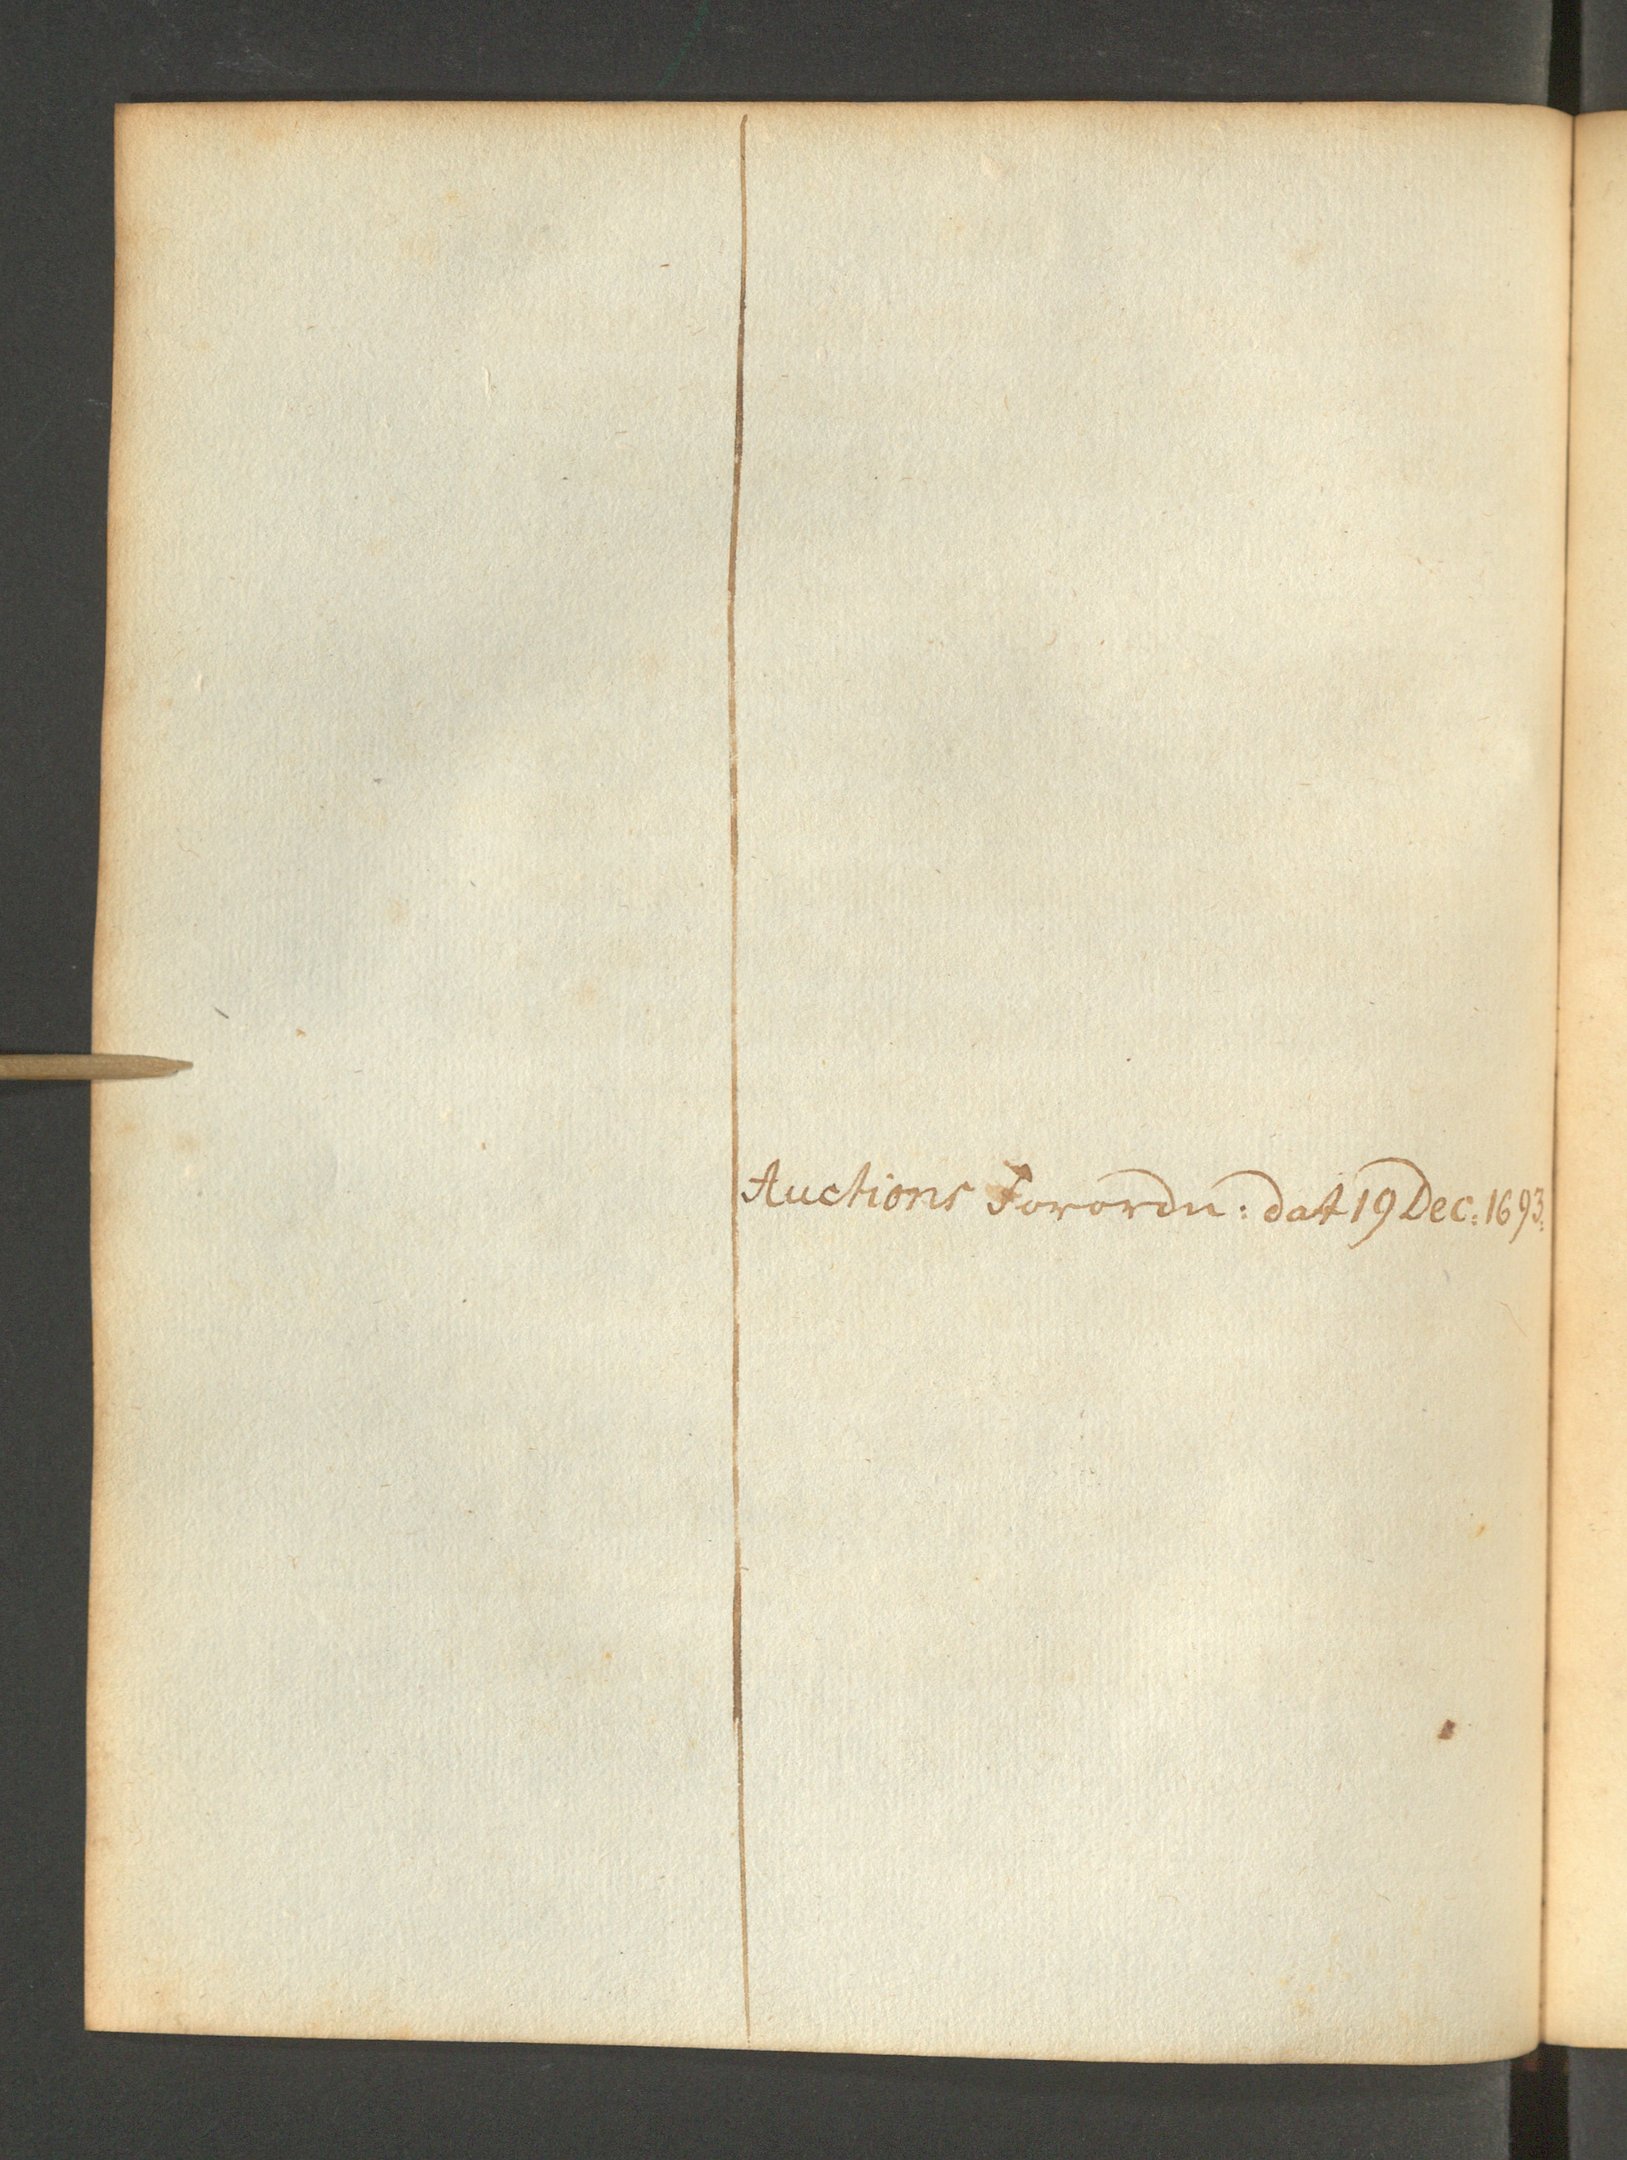 Auctions Forordn: dat 19 Dec: 1693.